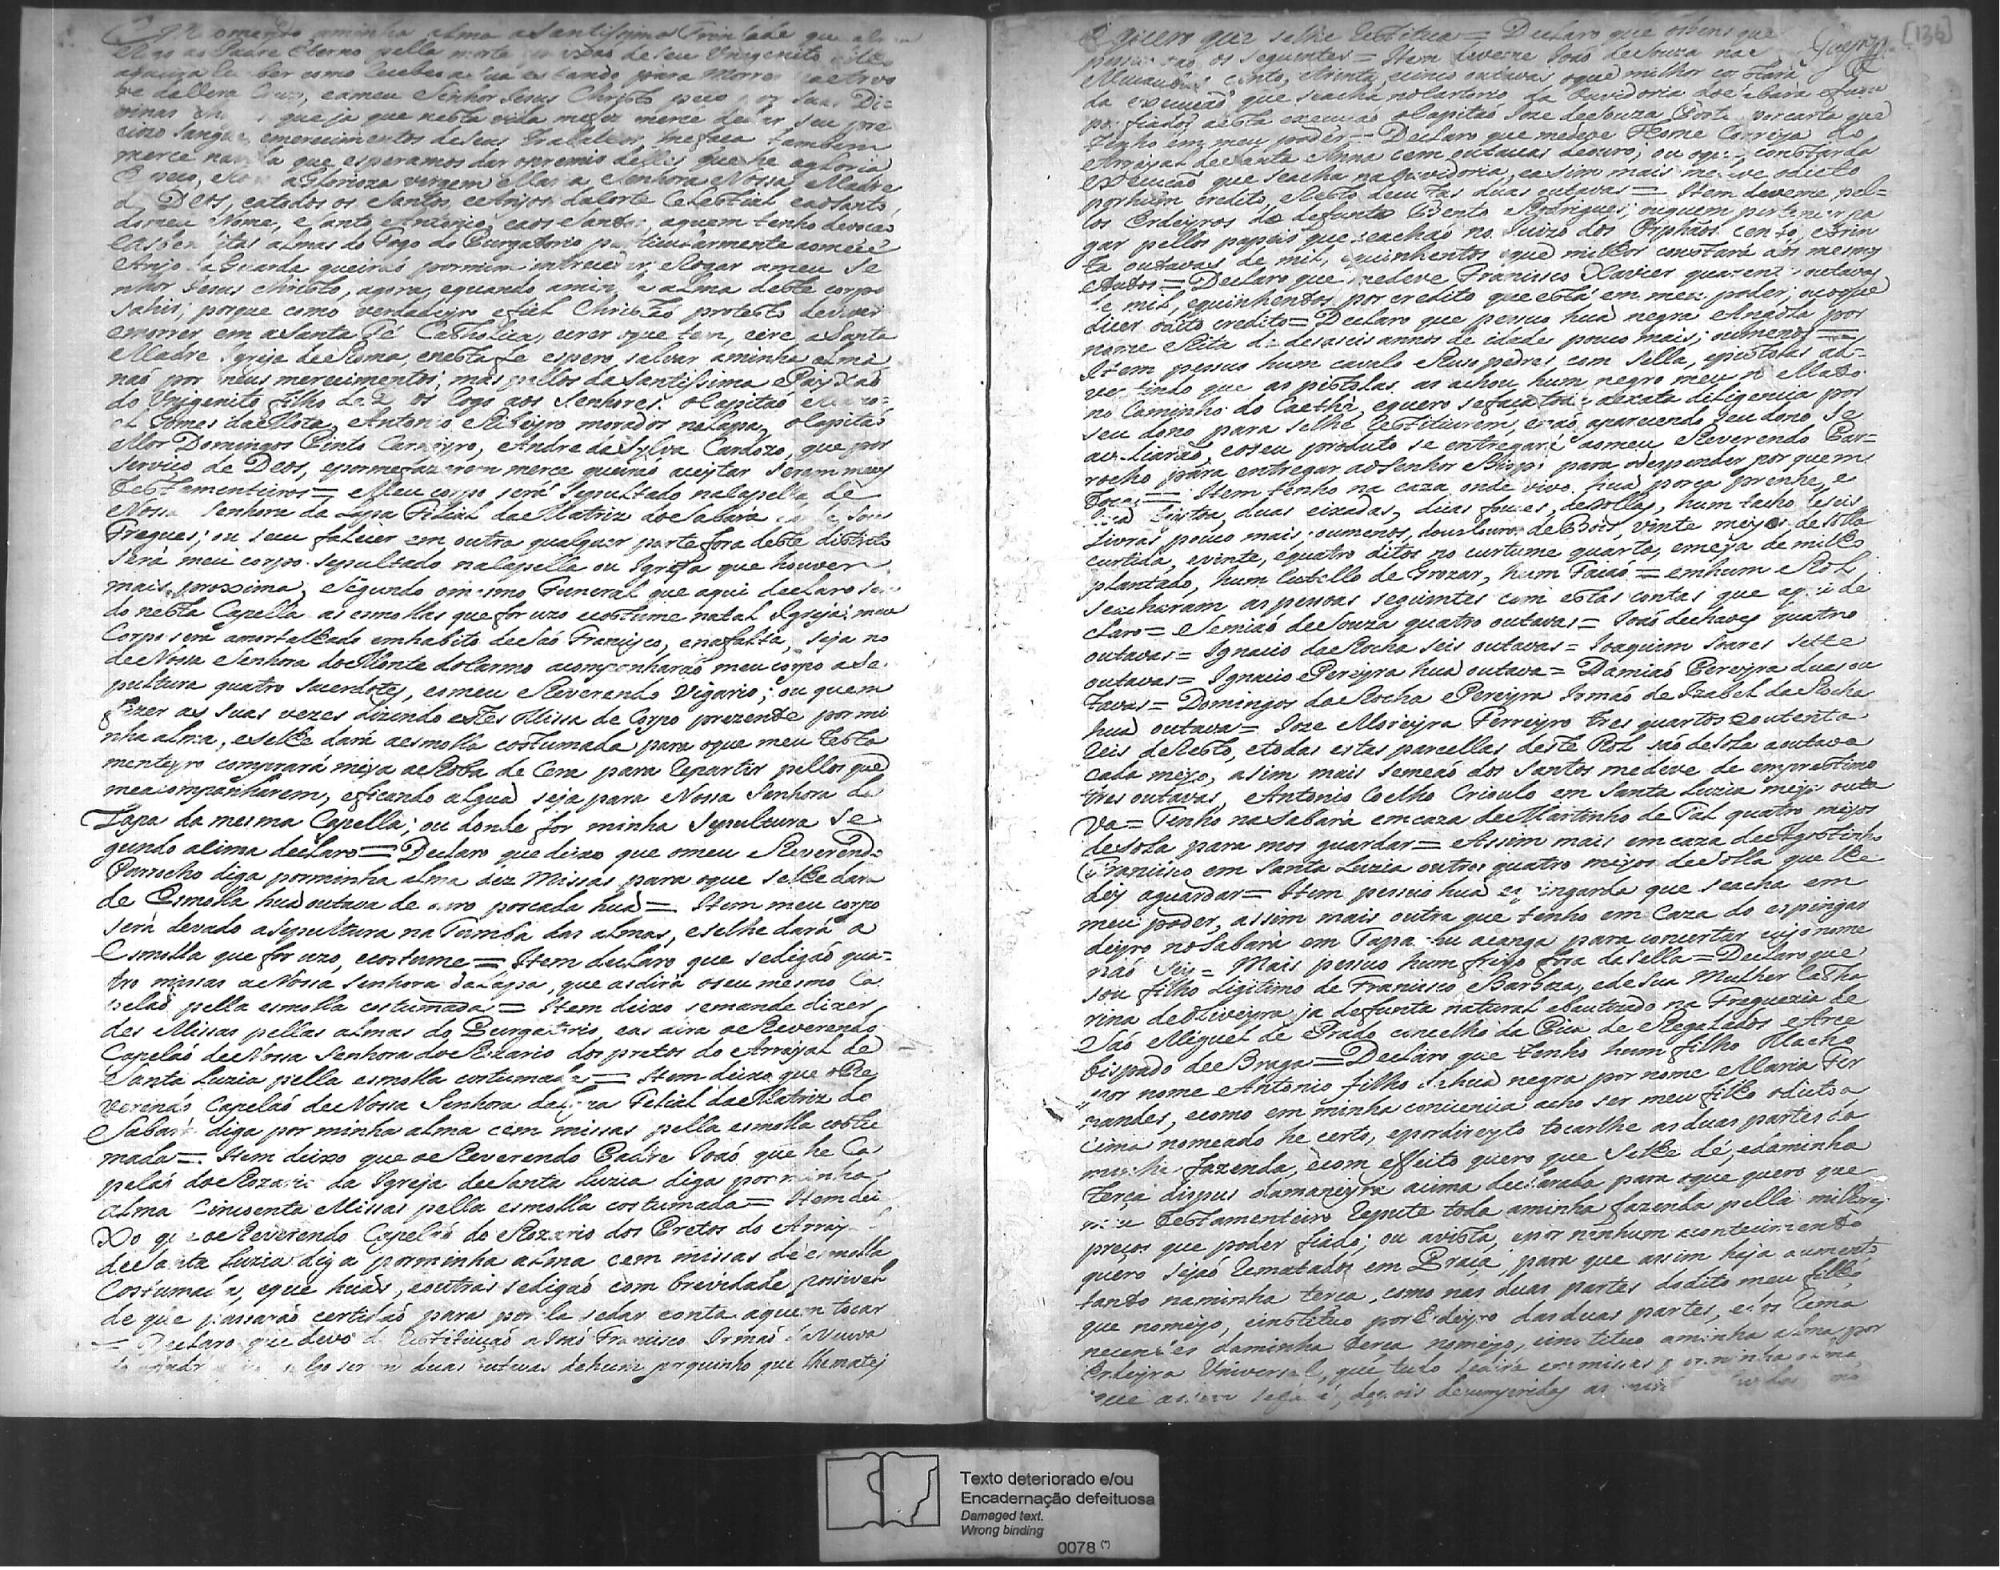 minha alma a Santissima Trindade que
Padre Eterno pella morte de seu Unigenito
receber como recebeo a sua estando para morrer
Vera Cruz, e a meu Senhor Jesus Christo peço por suas Di
vinas que ja que nesta vida me fez merce de dar seu pre
ciozo sangue, e merecimentos de seus trabalhos, me faça tambem
merce na vida que esperamos dar o premio delles que he a gloria
e peço, e Rogo a Glorioza virgem Maria, Senhora Nossa, Madre
de Deos, e a todos os Santos, e Anjos da Corte Celestial e ao Santo
do meu Nome, e Santo Antonio, e aos Santos aquem tenho devoção
e as benditas almas do Fogo do Purgatorio particularmente ao meu
Anjo da Guarda queirão por mim interceder, e Rogar a meu Se
nhor Jesus Christo, agora, e quando a minha alma deste corpo
sahir, porque como verdadeyro e fiel Christão protesto de viver
e morrer em a Santa Fé Catholica, e crer o que tem, e cre a Santa
Madre Igreja de Roma, e nesta fe espero salvar a minha alma
não por meus merecimentos; mas pellos da Santissima Payxão
do Unigenito filho de Deos Rogo aos Senhores: o Capitão
Gomes da Mota, Antonio Ribeyro morador na Lapa, o Capitão
Mor Domingos Pinto Carneyro, Andre da Sylva Cardozo, que por
serviço de Deos, e por me fazerem merce queirão aceytar serem meus
Testamenteiros = Meu corpo será sepultado na Capella de
Nossa Senhora da Lapa Filial da Matriz do Sabará
Fregues; ou se eu falecer em outra qualquer parte fora deste distrito
será meu corpo sepultado na Capella ou Igreja que houver
mais proxima, segundo o mesmo Funeral que aqui declaro sen
do nesta Capella as esmollas que for uzo e costume na tal Igreja: meu
Corpo será amortalhado em habito de São Francisco, e na falta, seja no
de Nossa Senhora do Monte do Carmo acompanharão meu corpo a Se
pultura quatro sacerdotes, e o meu Reverendo Vigario; ou quem
fizer as suas vezes dizendo estes Missa de Corpo prezente por mi
nha alma, e se lhe dará a esmolla costumada para o que meu testa
menteyro comprará meya a Roba de Cera para repartir pellos que
me acompanharem, e ficando algua seja para Nossa Senhora da
Lapa da mesma Capella; ou donde for minha sepultura se
gundo acima declaro = Declaro que deixo que o meu Reverendo
Parrocho diga por minha alma dez Missas para o que se lhe dara
de Esmolla hua outava de ouro por cada hua = Item meu corpo
será levado a sepultura na Tumba das almas, e se lhe dará a
Esmolla que for uzo, e costume = Item declaro que se digão qua=
tro missas a Nossa Senhora da Lapa, que as dira o seu mesmo Ca
pelão pella esmolla costumada = Item deixo se mande dizer
des Missas pellas almas do Purgatorio, e as dira o Reverendo
Capelão de Nossa Senhora do Rozario dos pretos do Arrayal de
Santa Luzia pella esmolla costumada = Item deixo que o Re
verendo Capelão de Nossa Senhora da Lapa Filial da Matriz do
Sabará diga por minha alma cem missas pella esmolla costu
mada = Item deixo que o Reverendo Padre João que he Ca
pelão do Rozario da Igreja de Santa Luzia diga por minha
alma Cincoenta Missas pella esmolla costumada = Item dei
xo que o Reverendo Capelão do Rozario dos Pretos do Arrayal
de Santa Luzia diga por minha alma cem missas de esmolla
Costumada, e que huas, e outras se digão com brevidade posivel
de que passarão certidão para por ella se dar conta a quem tocar
= Declaro que devo de Restituição a João Francisco Irmão da Viuva
duas outavas de hum porquinho que lhe matey
[136]
e quero que se lhe Restitua = Declaro que os bens que
possuo são os seguintes = Item deveme João de Souza
cento, e trinta e cinco outavas o que milhor constará
da execução que se acha no Cartorio da Ouvidoria do Sabará
fiador desta execução o Capitão Joze de Souza Porto por carta que
tenho em meu poder = Declaro que me deve Thome Correya do
Arrayal de Santa Anna cem outavas de ouro; ou o que constar da
execução que se acha na Ouvidoria, e asim mais me deve o dito
por hum credito, e Resto duas outavas = Item deveme pel=
los Erdeyros do defunto Bento Rodrigues; ou quem pertencer pa
gar pellos papeis que se achão no Juizo dos Orphãos cento, e trin
ta outavas de mil, e quinhentos o que milhor constará dos mesmos
Autos = Declaro que me deve Francisco Xavier quarenta outavas
de mil, e quinhentos por credito que está em meu poder; ou o que
dicer o dito credito = Declaro que possuo hua negra Angola por
nome Rita de desaseis annos de idade pouco mais; ou menos =
Item possuo hum cavalo Ruço pedres com sella, e pistolas ad=
vertindo que as pistolas as achou hum negro meu no Mato
no Caminho do Caethé, e quero se faça toda a exata diligencia por
seu dono para se lhe restituirem, e não aparecendo seu dono se
avaliarão, e o seu produto se entregará ao meu Reverendo Par=
rocho para entregar ao Senhor Bispo para o despender por quem
Tocar = Item tenho na caza onde vivo hua porca prenhe, e
duas eixadas, duas fouces, de rollas, hum tacho de seis
Livras pouco mais; ou menos, dous Couros de Bois, vinte meyos de solla
curtida, e vinte, e quatro ditos no curtume quarta, e meya de milho
plantado, hum Cutello de Grozar, hum Faião = em hum Rol
se acharam as pessoas seguintes com estas contas que aqui de
claro = Semião de Souza quatro outavas = João de chaves quatro
outavas = Ignacio da Rocha seis outavas = Joaquim Soares sette
outavas = Ignacio Pereyra hua outava = Damião Pereyra duas ou
tavas = Domingos da Rocha e Pereyra Irmão de Izabel da Rocha
hua outava = Joze Moreyra Ferreyro tres quartos e outenta
Reis de Resto, e todas estas parcellas deste Rol são de sola a outava
cada meyo, asim mais Semeão dos Santos me deve de emprestimo
tres outavas, Antonio Coelho Crioulo em Santa Luzia meya outa
va = Tenho no Sabará em caza de Martinho de Tal quatro meyos
de sola para mos guardar = Assim mais em caza de Agostinho
Francisco em Santa Luzia outros quatro meyos de solla que lhe
dey a guardar = Item possuo hua espingarda que se acha em
meu poder, assim mais outra que tenho em Caza do espingar
deyro no Sabará em Tapanhuacanga para concertar cujo nome
não sey = Mais possuo hum freyo fora da sella = Declaro que
sou filho Ligitimo de Francisco Barboza, e de sua Mulher Catha
rina de Oliveyra ja defunta natural e bautizado na Freguezia de
São Miguel de Prado concelho da Pica de Regalados Arce
bispado de Braga = Declaro que tenho hum filho Macho
por nome Antonio filho de hua negra por nome Maria Fer
nandes, e como em minha conciencia acho ser meu filho o dito a
cima nomeado he certo, e por direyto tocarlhe as duas partes da
minha fazenda, e com effeito quero que se lhe dé, e da minha
terça dispus da maneyra acima declarada para o que quero que
meu Testamenteiro repute toda a minha fazenda pella milhor
preços que poder fiado; ou a vista, e por nenhum acontecimento
quero sejão Rematados em Praça, para que assim haja aumento
tanto na minha terça, como nas duas partes do dito meu filho
que nomeyo, e instituo por Erdeyro das duas partes, e dos rema
necentes da minha terça nomeyo, e instituo a minha alma por
Erdeyra Universal, que tudo se dirá em missas por minha alma
que assim seja depois de cumpridas as
Texto deteriorado e/ou
Encadernação defeituosa
Damaged text.
Wrong binding
0078 (*)